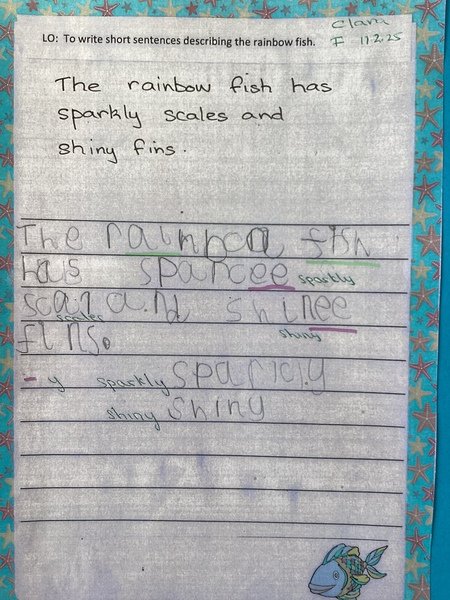 Clara
LO: To write short sentences describing the rainbow fish.
I 11.2.25
The rainbow fish has
sparkly scales and
shiny fins.
The rainbon fish
has sparcee sparkly
scal and shinee
scales
fins. shiny
- y sparkly sparkly
shiny shiny